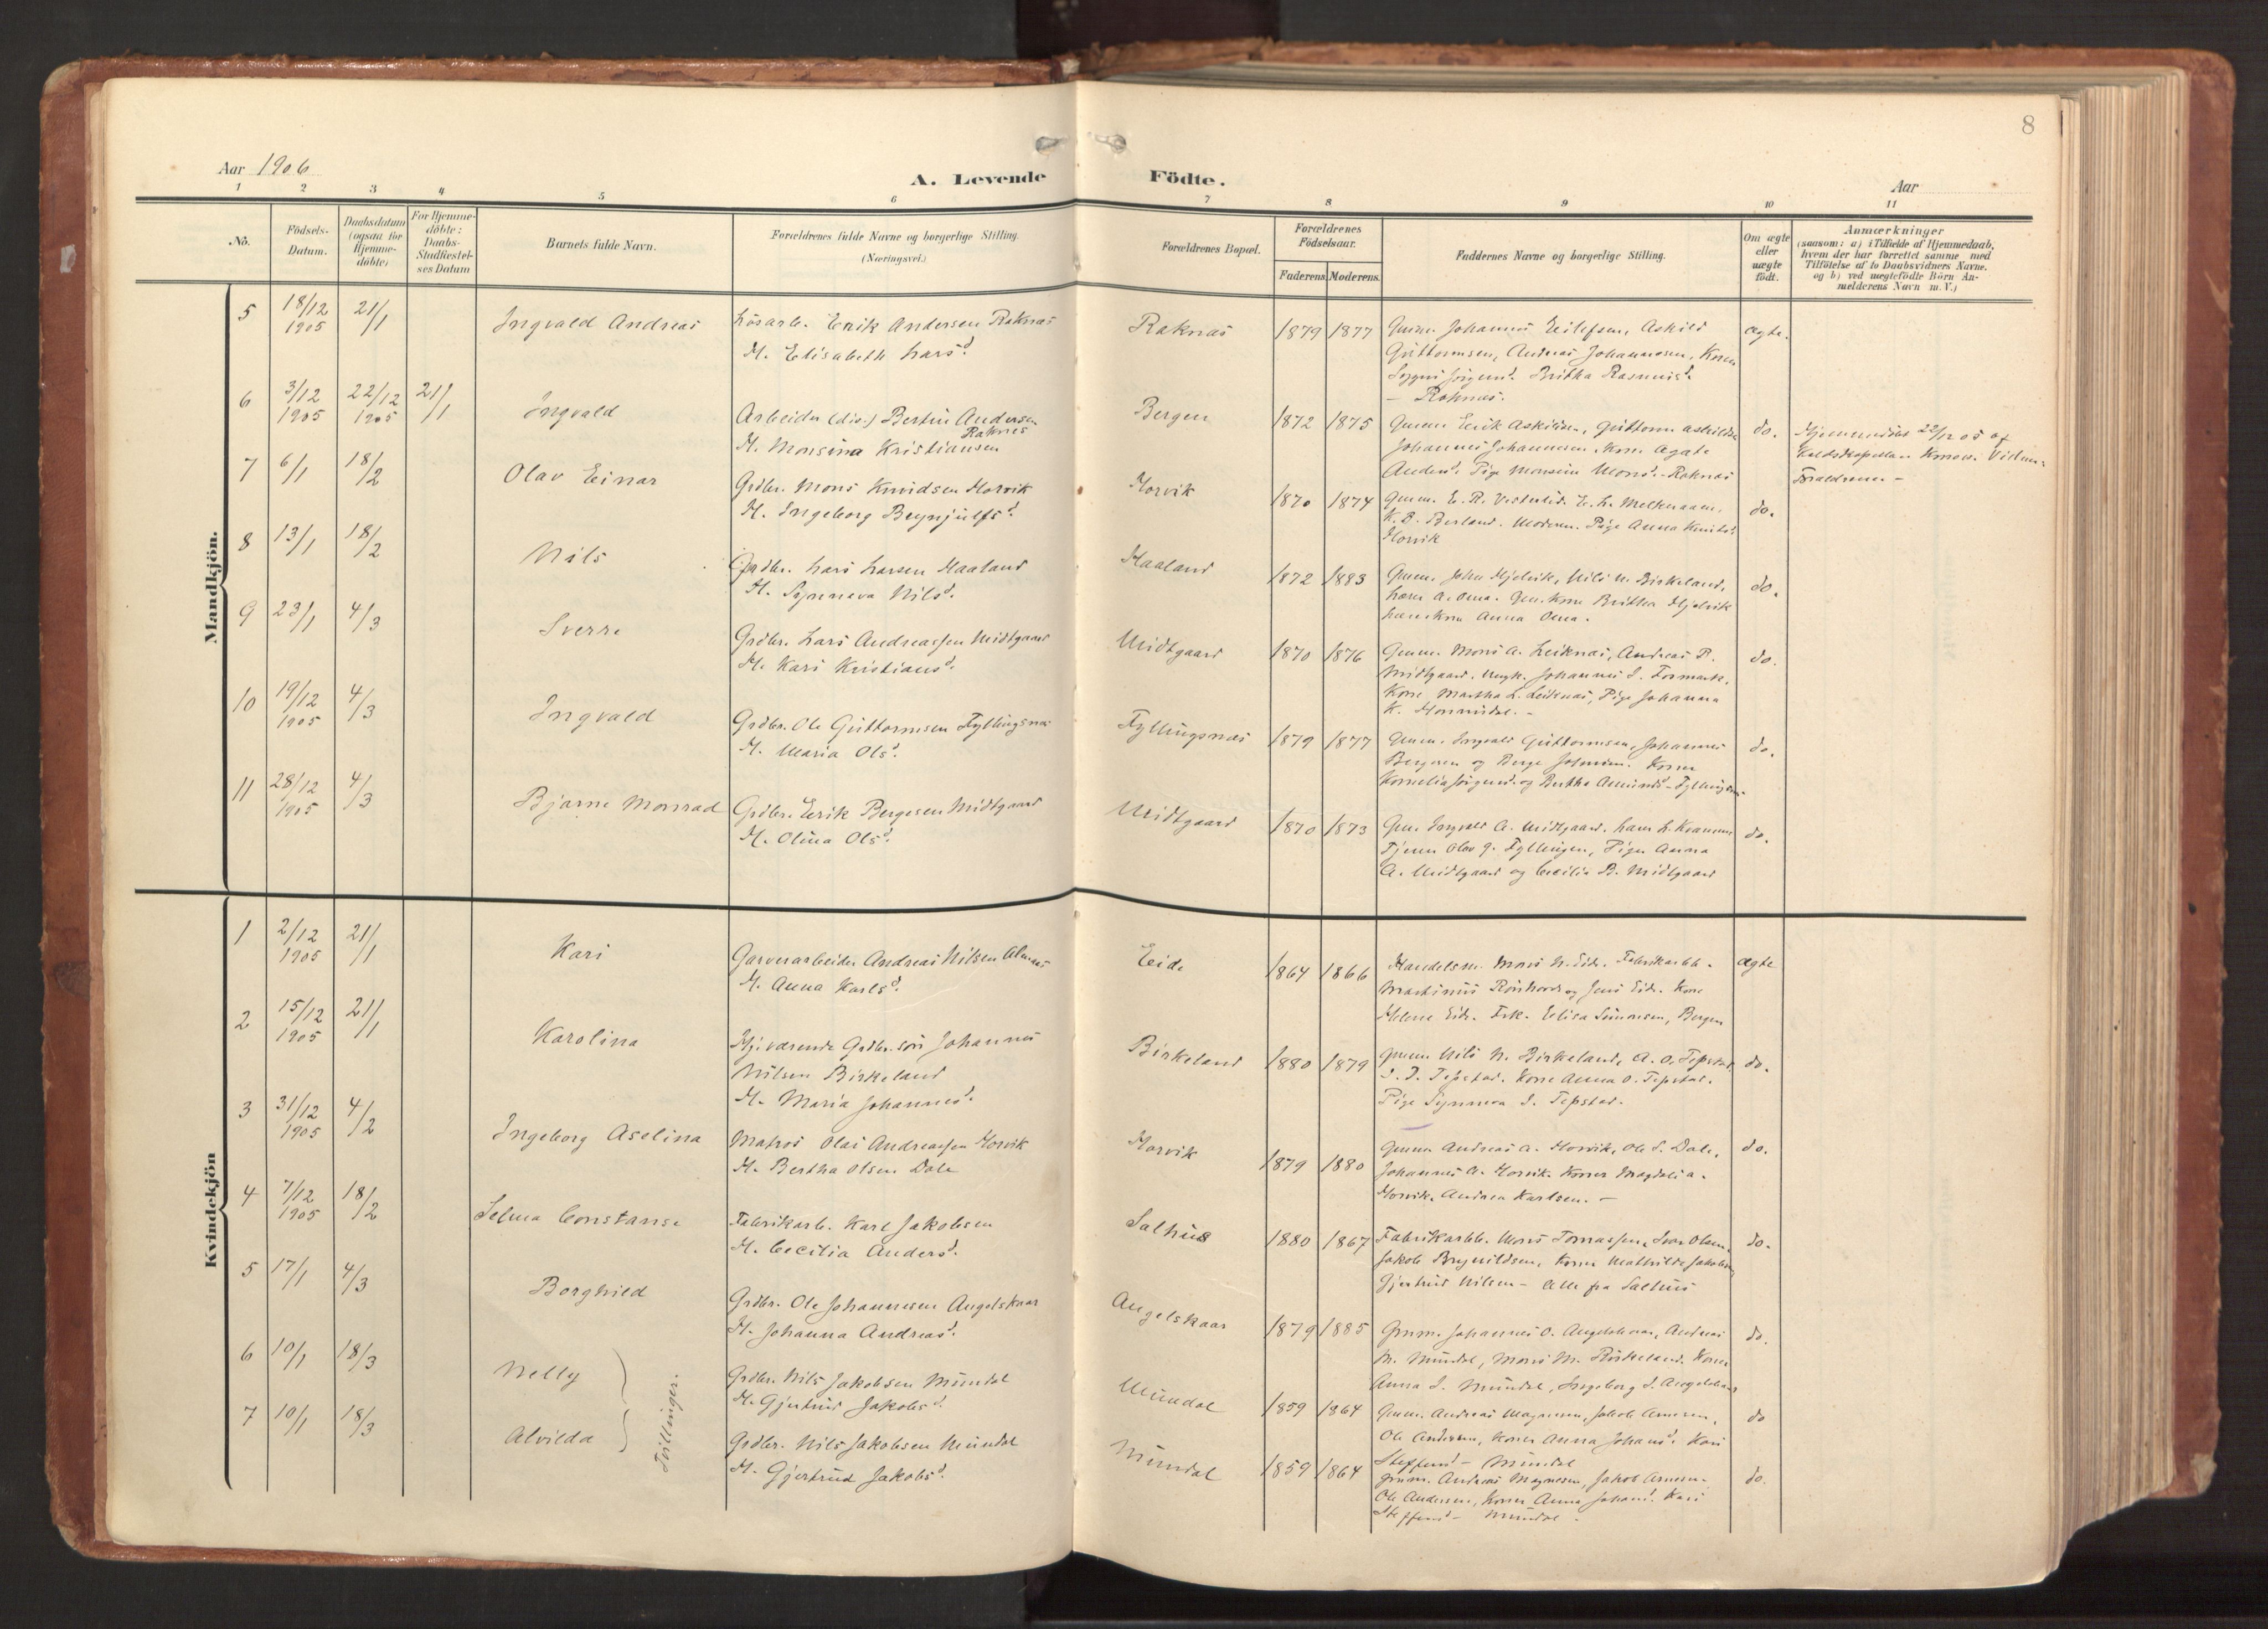 8
Aar 1906
A. Levende Födte.
Aar
1 2 3 4 5 6 7 8 9 10 11
No.
Födsels-Datum.
Daabsdatum (ogsaa for Hjemme-döbte)
For Hjemme-döbte: Daabs-Stadfæstel-ses Datum
Barnets fulde Navn.
Forældrenes fulde Navne og borgerlige Stilling.
(Næringsvei.)
Forældrenes Bopæl.
Forældrenes Födselsaar.
Faderens. Moderens.
Faddernes Navne og borgerlige Stilling.
Om ægte eller uægte födt.
Anmærkninger
(saasom: a) i Tilfælde af Hjemmedaab,
hvem der har forrettet samme med
Tilföielse af to Daabsvidners Navne.
og b) ved uægtefödte Börn An-
melderens Navn m. V.)
Mandkjön.
5 18/12 1905 21/1 Ingvald Andreas Lösarb. Erik Andersen Raknæs Raknæs 1879 1877 Johannes Eilefsen, Askild ægte.
H. Elisabeth Larsd. Guttormsen, Andreas Johannesen, Kone
Britha Rasmusd.
– Raknæs.
6 3/12 1905 22/12 1905 21/1 Ingvald Arbeider (div.) Bertin Andersen Raknes Bergen 1872 1875 Erik Askildsen, Guttorm Askildsen do. Hjemmedöbt 22/12 05 af
H. Monsina Kristiansen Johannes Johannesen. Kone Agate
Andersd. Pige Monsine Monsd. Raknæs Forældrene. –
7 6/1 18/2 Olav Einar Grdbr. Mons Knudsen Horvik Horvik 1870 1874 E. R. do.
H. Ingeborg Brynjulfsd. K. B. Berland. Pige Anna
Horvik
8 13/1 18/2 Nils Grdbr. Lars Larsen Haaland Haaland 1872 1883 Hjelvik, Nils N. Birkeland, do.
H. Synneva Nilsd. Kone Britha Hjelvik
Anna
9 23/1 4/3 Sverre Grdbr. Lars Andreassen Midtgaard Midtgaard 1870 1876 Mons A. Leiknæs, Andreas P. do.
H. Kari Kristiansd. Midtgaard, Ungk. Johannes
Kone Martha L. Leiknæs, Pige Johanna
K. –
10 19/12 1905 4/3 Ingvald Grdbr. Ole Guttormsen Fyllingsnæs Fyllingsnæs 1879 1877 Ingvald Guttormsen, Johannes do.
H. Maria Olsd. Bergesen og Berge
og Bertha
11 28/12 1905 4/3 Bjarne Monrad Grdbr. Erik Bergesen Midtgaard Midtgaard 1870 1873 Ingvald A. Midtgaard. do.
H. Olina Olsd. Olav Fyllingen, Piger Anna
A. Midtgaard og Cecilia B. Midtgaard
Kvindekjön
1 2/12 1905 21/1 Kari Garverarbeider Andreas Nilsen Eide 1864 1866 Handelsm. Mons N. Eide. Fabrikarb. ægte
H. Anna Karlsd. Martinus og Jens Eide. Kone
Helene Eide. Frk. Elisa Simonsen, Bergen
2 15/12 1905 21/1 Karolina Hj.værende Grdbr.sön Johannes Birkeland 1880 1879 Nils N. Birkeland, A. O. Tepstad, do.
Nilsen Birkeland Tepstad. Kone Anna O. Tepstad.
H. Maria Johannesd. Pige Synneva Tepstad.
3 31/12 1905 4/2 Ingeborg Aselina Matros Olai Andreassen Horvik Horvik 1879 1880 Andreas A. Horvik, Ole S. Dale, do.
H. Bertha Olsen Dale Johannes A. Horvik. Koner Magdeli A.
Horvik. Andrea Karlsen. –
4 7/12 1905 18/2 Selma Constanse Fabrikarb. Karl Jakobsen Salhus 1880 1867 Fabrikarbb. Mons Tomassen, Ivar Olsen, do.
H. Cecilia Andersd. Jakob Brynildsen, Koner Mathilde Jakobsen,
Gjertrud Nilsen – Alle fra Salhus
5 17/1 4/3 Borghild Grdbr. Ole Johannesen Angelskaar Angelskaar 1879 1885 Johannes O. Angelskaar, Andreas do.
H. Johanna Andreasd. M. Mundal, Mons M. Birkeland. Koner
Anna Mundal, Ingeborg Angelskaar
6 10/1 18/3 Nelly Grdbr. Nils Jakobsen Mundal Mundal 1859 1864 Andreas Magnesen, Jakob Arnesen, do
H. Gjertrud Jakobsd. Ole Andersen, Koner Anna Johansd. Kari
Steffensd. – Mundal
Tvillinger.
7 10/1 18/3 Alvilda Grdbr. Nils Jakobsen Mundal Mundal 1859 1864 Andreas Magnesen, Jakob Arnesen. do.
H. Gjertrud Jakobsd. Ole Andersen, Koner Anna Johansd. Kari
Steffensd. – Mundal –